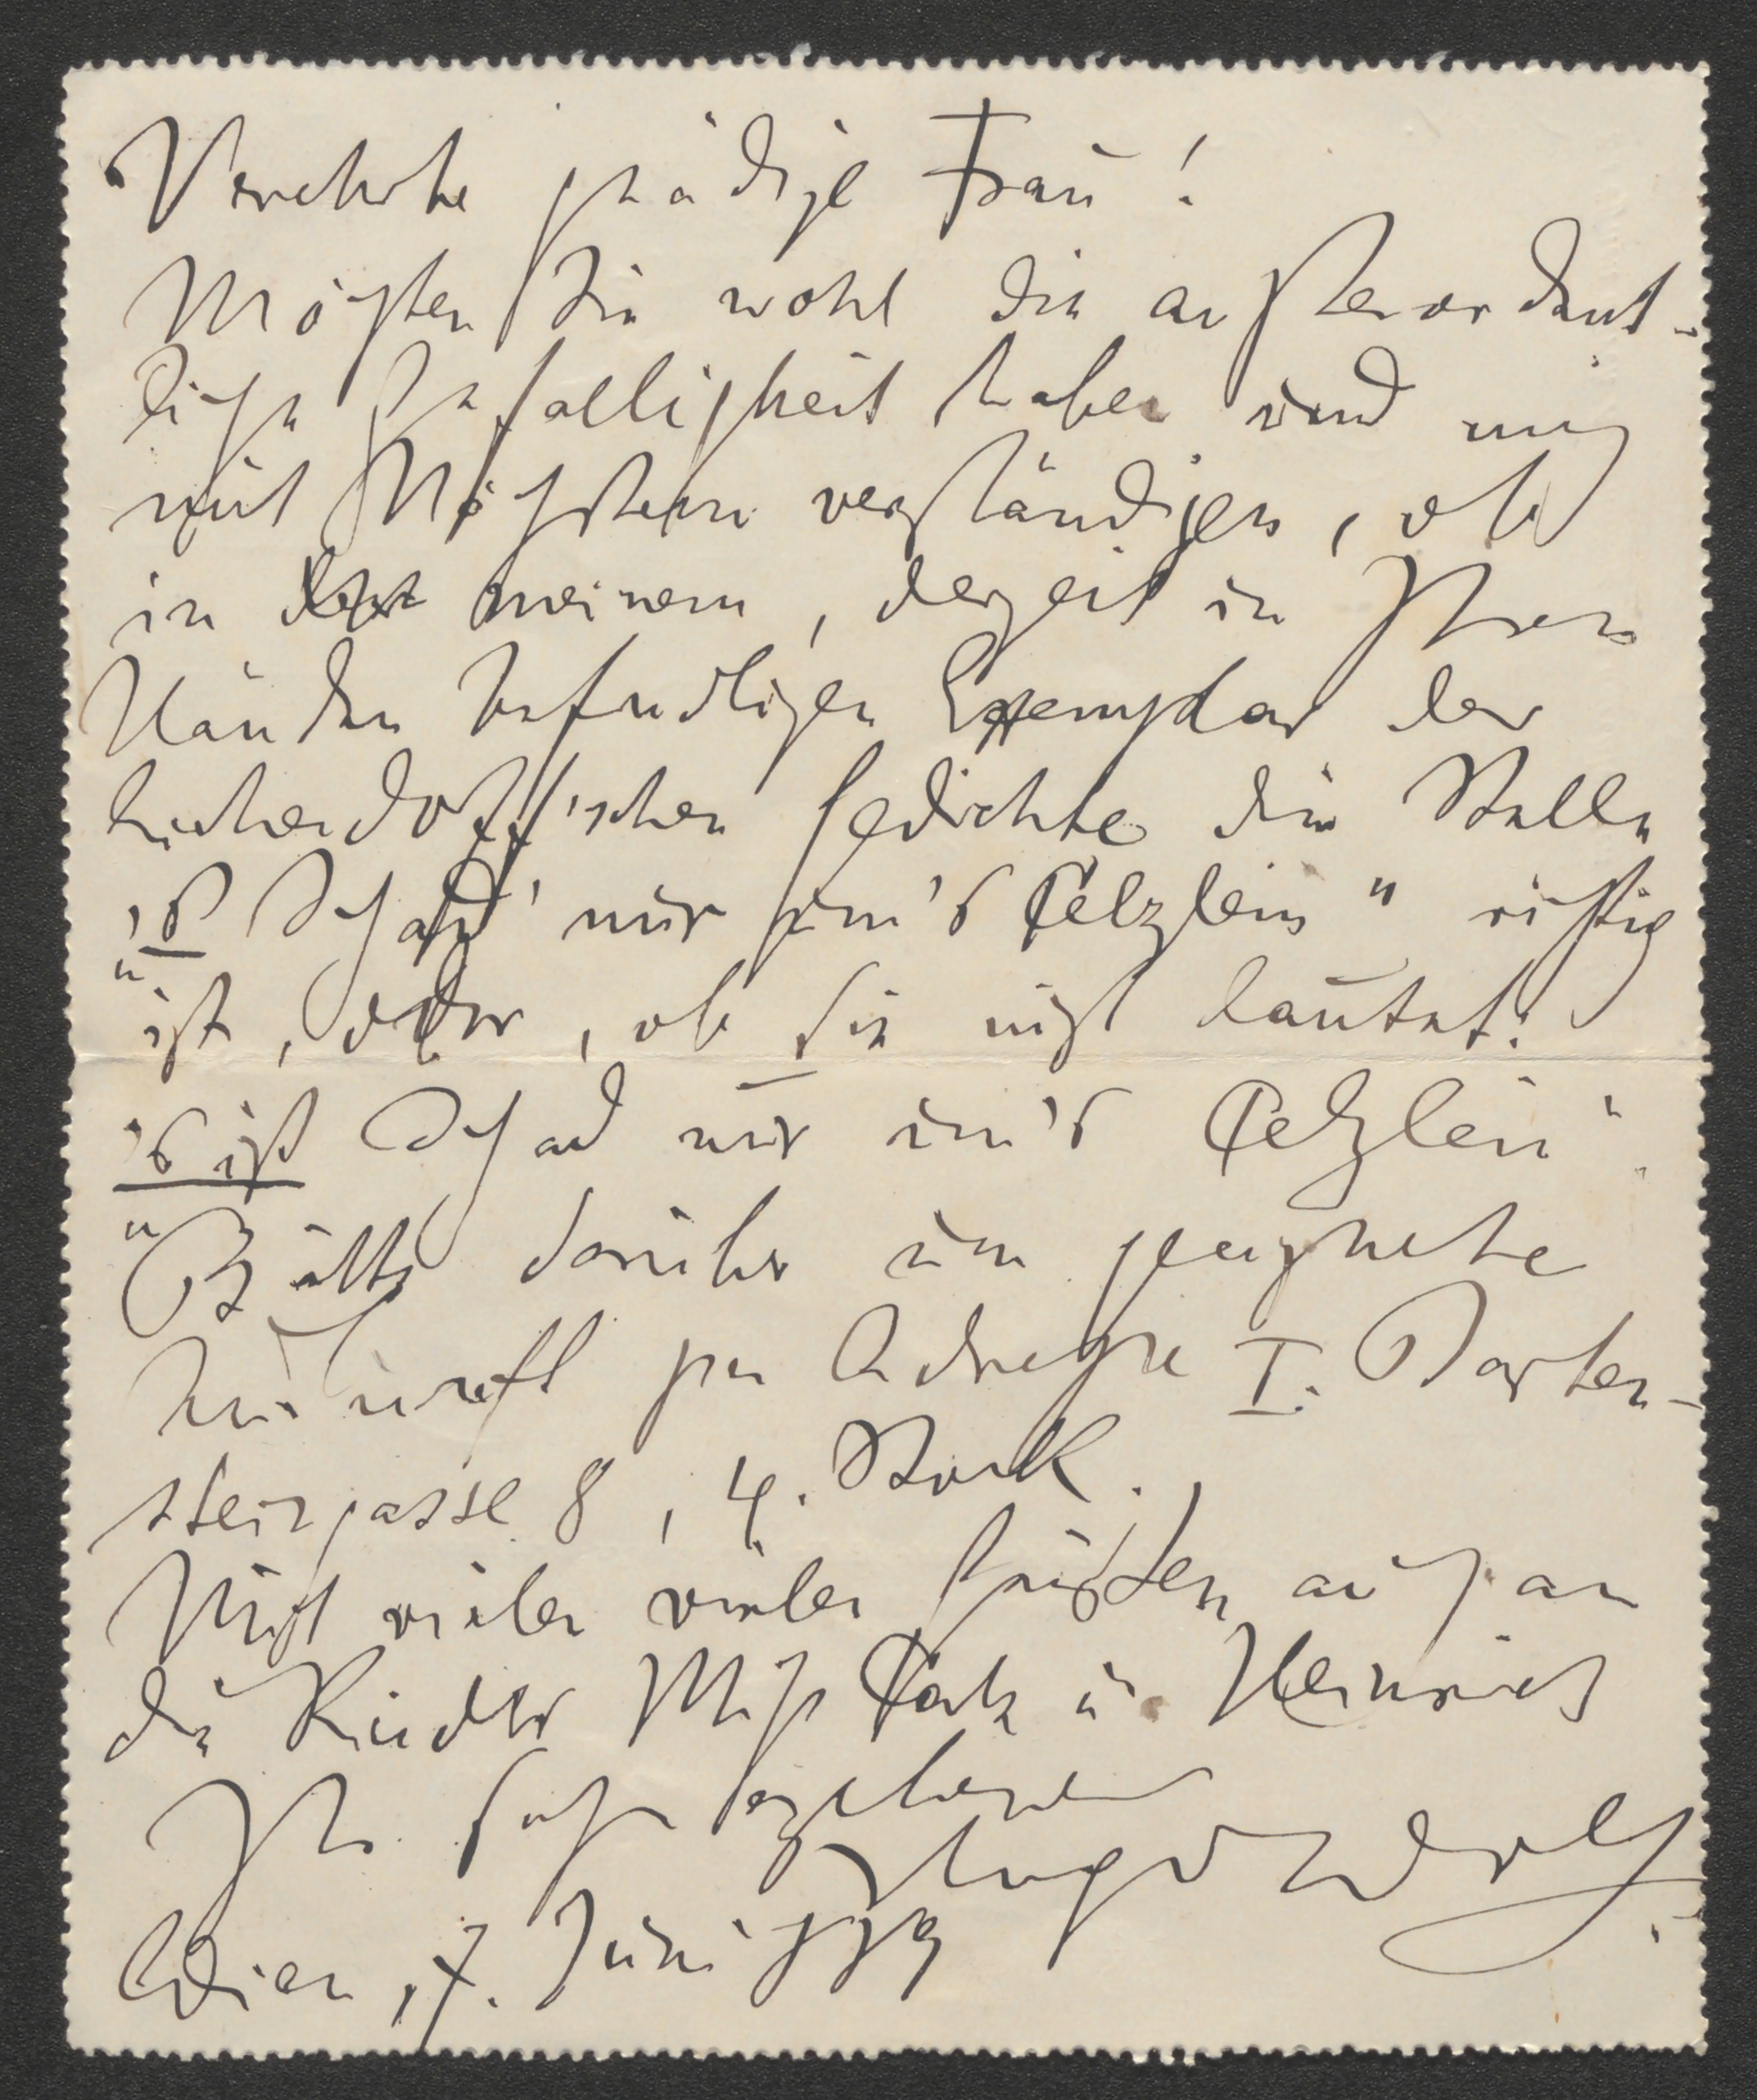 Verehrte gnädige Frau!
Möchten Sie wohl die außerordent-
liche Gefälligkeit haben und mich
mit Nächstem verständigen, ob
in meinem, derzeit in Ihren
Händen befindlichen Exemplar der
Eichendorff'schen Gedichte die Stelle
„'s Schad' nur um's Pelzlein" richtig
ist, oder, ob sie nicht lautet:
„'s ist Schad nur um's Pelzlein".
Bitte darüber um geeignete
Auskunft per Adresse I. Dorben-
steingasse 8, 4. Stock.
Mit vielen vielen Grüßen auch an
die Kinder Miss Park u. Heinrich
Ihr sehr ergebener
Hugo Wolf
Wien, 7. Juni 889